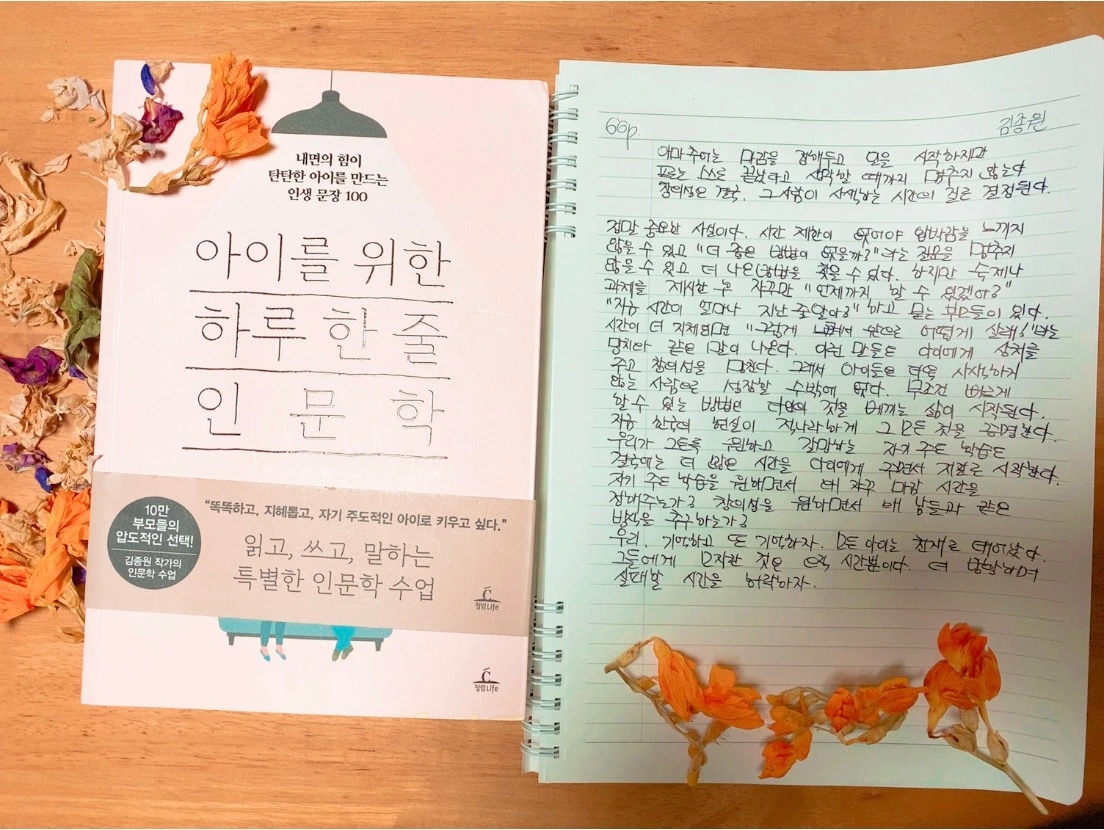 내면의 힘이
탄탄한 아이를 만드는
인생 문장 100
아이를 위한
하루 한 줄
인 문 학
10만
부모들의
압도적인 선택!
김종원 작가의
인문학 수업
"똑똑하고, 지혜롭고, 자기 주도적인 아이로 키우고 싶다."
읽고, 쓰고, 말하는
특별한 인문학 수업
청림Life
청림Life
60p
김종원
아마추어는 마감을 정해두고 일을 시작하지만
프로는 스스로 끝났다고 생각할 때까지 멈추지 않는다
창의성은 결국, 그 사람이 사색하는 시간의 질로 결정된다.
정말 중요한 사실이다. 시간 제한이 없어야 압박감을 느끼지
않을 수 있고 "더 좋은 방법이 없을까?"라는 질문을 멈추지
않을 수 있고 더 나은 방법을 찾을 수 있다. 하지만 숙제나
과제를 제시한 후 자꾸만 "언제까지 할 수 있겠어?"
"지금 시간이 얼마나 지난 줄 알아?" 하고 묻는 부모들이 있다.
시간이 더 지체되면 "그렇게 느려서 앞으로 어떻게 살래!"라는
망치와 같은 말이 나온다. 이런 말들은 아이에게 상처를
주고 창의성을 망친다. 그래서 아이들은 더욱 사색하지
않는 사람으로 성장할 수밖에 없다. 무조건 빠르게
할 수 있는 방법인 타인의 것을 베끼는 삶이 시작된다.
지금 한국의 현실이 적나라하게 그 모든 것을 증명한다.
우리가 그토록 원하고 갈망하는 자기 주도 학습도
결국에는 더 많은 시간을 아이에게 주면서 저절로 시작한다.
자기 주도 학습을 원하면서 왜 자꾸 마감 시간을
정해주는가? 창의성을 원하면서 왜 남들과 같은
방식을 추구하는가?
우리, 기억하고 또 기억하자. 모든 아이는 천재로 태어났다.
그들에게 모자란 것은 오직 시간뿐이다. 더 방황하며
실패할 시간을 허락하자.